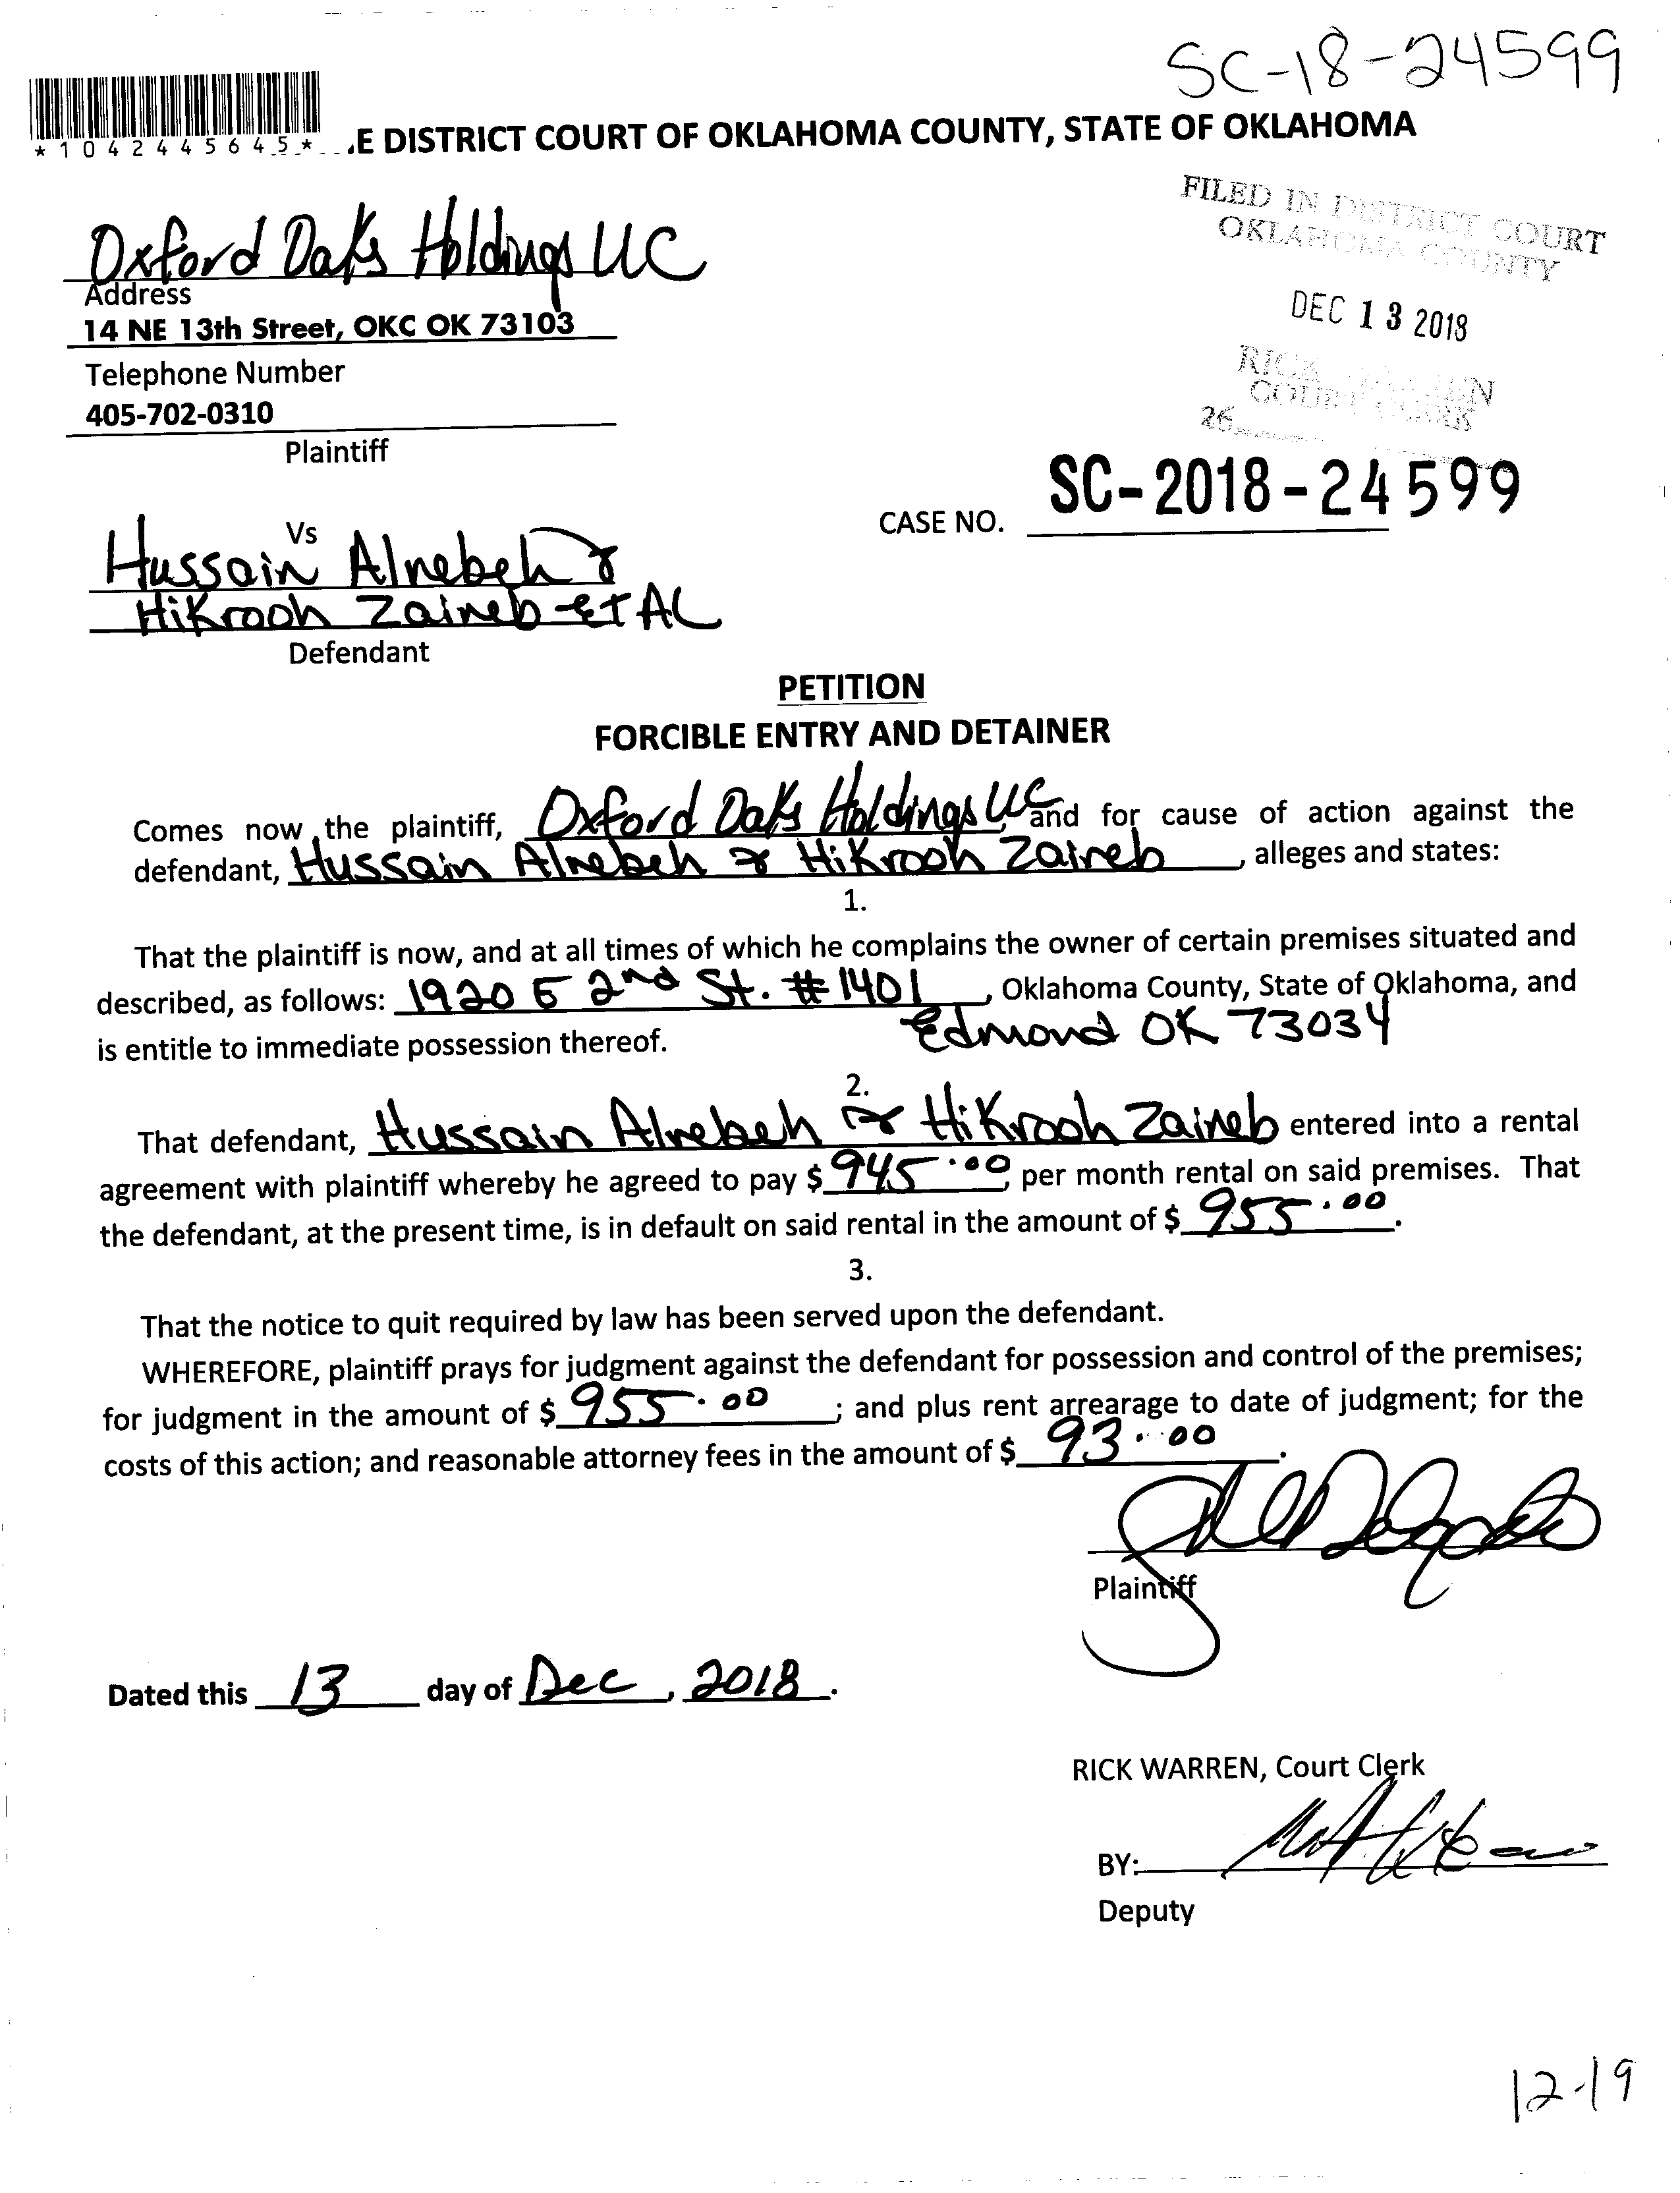 SC-18-24599
*1042445645*
.E DISTRICT COURT OF OKLAHOMA COUNTY, STATE OF OKLAHOMA
FILED IN DISTRICT COURT
OKLAHOMA COUNTY
DEC 13 2018
RICK WARREN
COURT CLERK
26
Oxford Oaks Holdings LLC
Address
14 NE 13th Street, OKC OK 73103
Telephone Number
405-702-0310
Plaintiff
CASE NO. SC-2018-24599
Vs
Hussain Alnebeh &
Hikrooh Zaineb et AL
Defendant
PETITION
FORCIBLE ENTRY AND DETAINER
Comes now the plaintiff, Oxford Oaks Holdings LLC, and for cause of action against the
defendant, Hussain Alnebeh & Hikrooh Zaineb, alleges and states:
1.
That the plaintiff is now, and at all times of which he complains the owner of certain premises situated and
described, as follows: 1920 E 2nd St. #1401, Oklahoma County, State of Oklahoma, and
Edmond OK 73034
is entitle to immediate possession thereof.
2.
That defendant, Hussain Alnebeh & Hikrooh Zaineb entered into a rental
agreement with plaintiff whereby he agreed to pay $ 945.00, per month rental on said premises. That
the defendant, at the present time, is in default on said rental in the amount of $ 955.00.
3.
That the notice to quit required by law has been served upon the defendant.
WHEREFORE, plaintiff prays for judgment against the defendant for possession and control of the premises;
for judgment in the amount of $ 955.00; and plus rent arrearage to date of judgment; for the
costs of this action; and reasonable attorney fees in the amount of $ 93.00.
Plaintiff
Dated this 13 day of Dec, 2018.
RICK WARREN, Court Clerk
BY:
Deputy
12-19